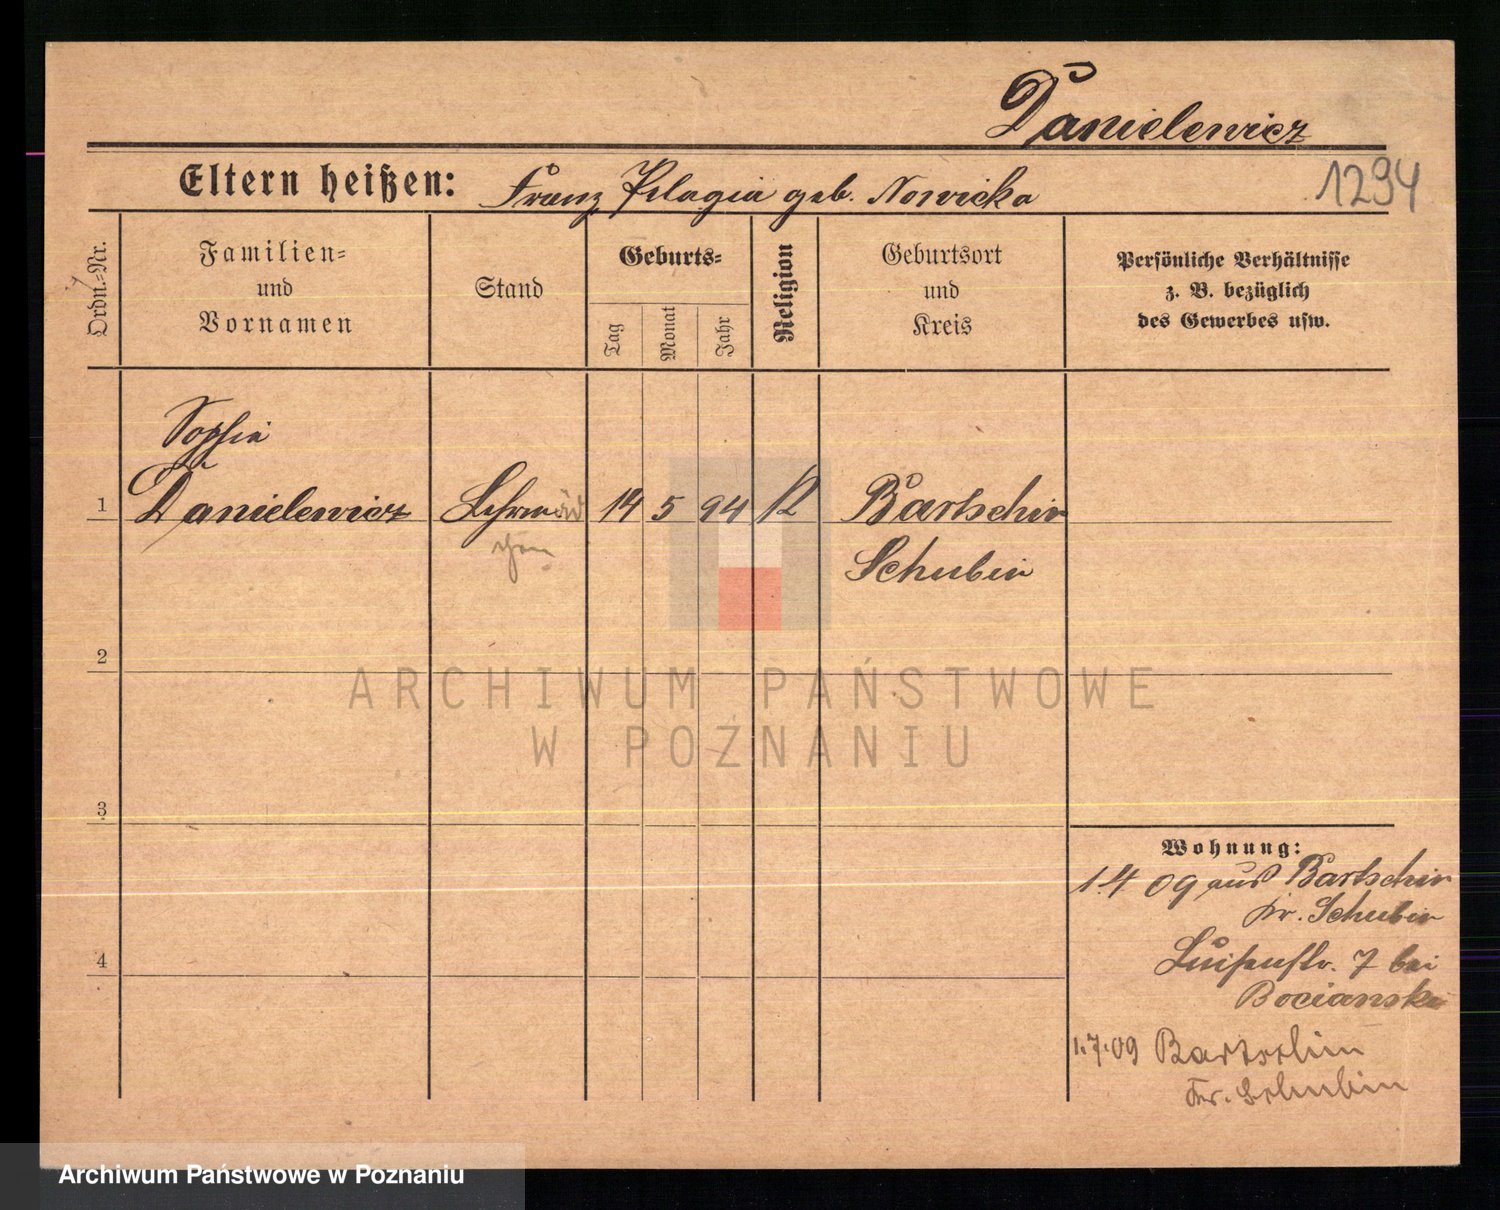 Danielewicz
Eltern heißen: Franz Pelagia geb. Nowicka
1294
Ordn.=Nr.
Familien=
und
Vornamen
Stand
Geburts=
Tag
Monat
Jahr
Religion
Geburtsort
und
Kreis
Persönliche Verhältnisse
z. B. bezüglich
des Gewerbes usw.
Sophia
1 Danielewicz Lehrmäd 14 5 94 K Bartschin
chen
Schubin
2
3
4
Wohnung:
1.4 09 aus Bartschin
Kr. Schubin
Luisenstr. 7 bei
Bocianska
1.7.09 Bartschin
Kr. Schubin
ARCHIWUM PAŃSTWOWE
W POZNANIU
Archiwum Państwowe w Poznaniu